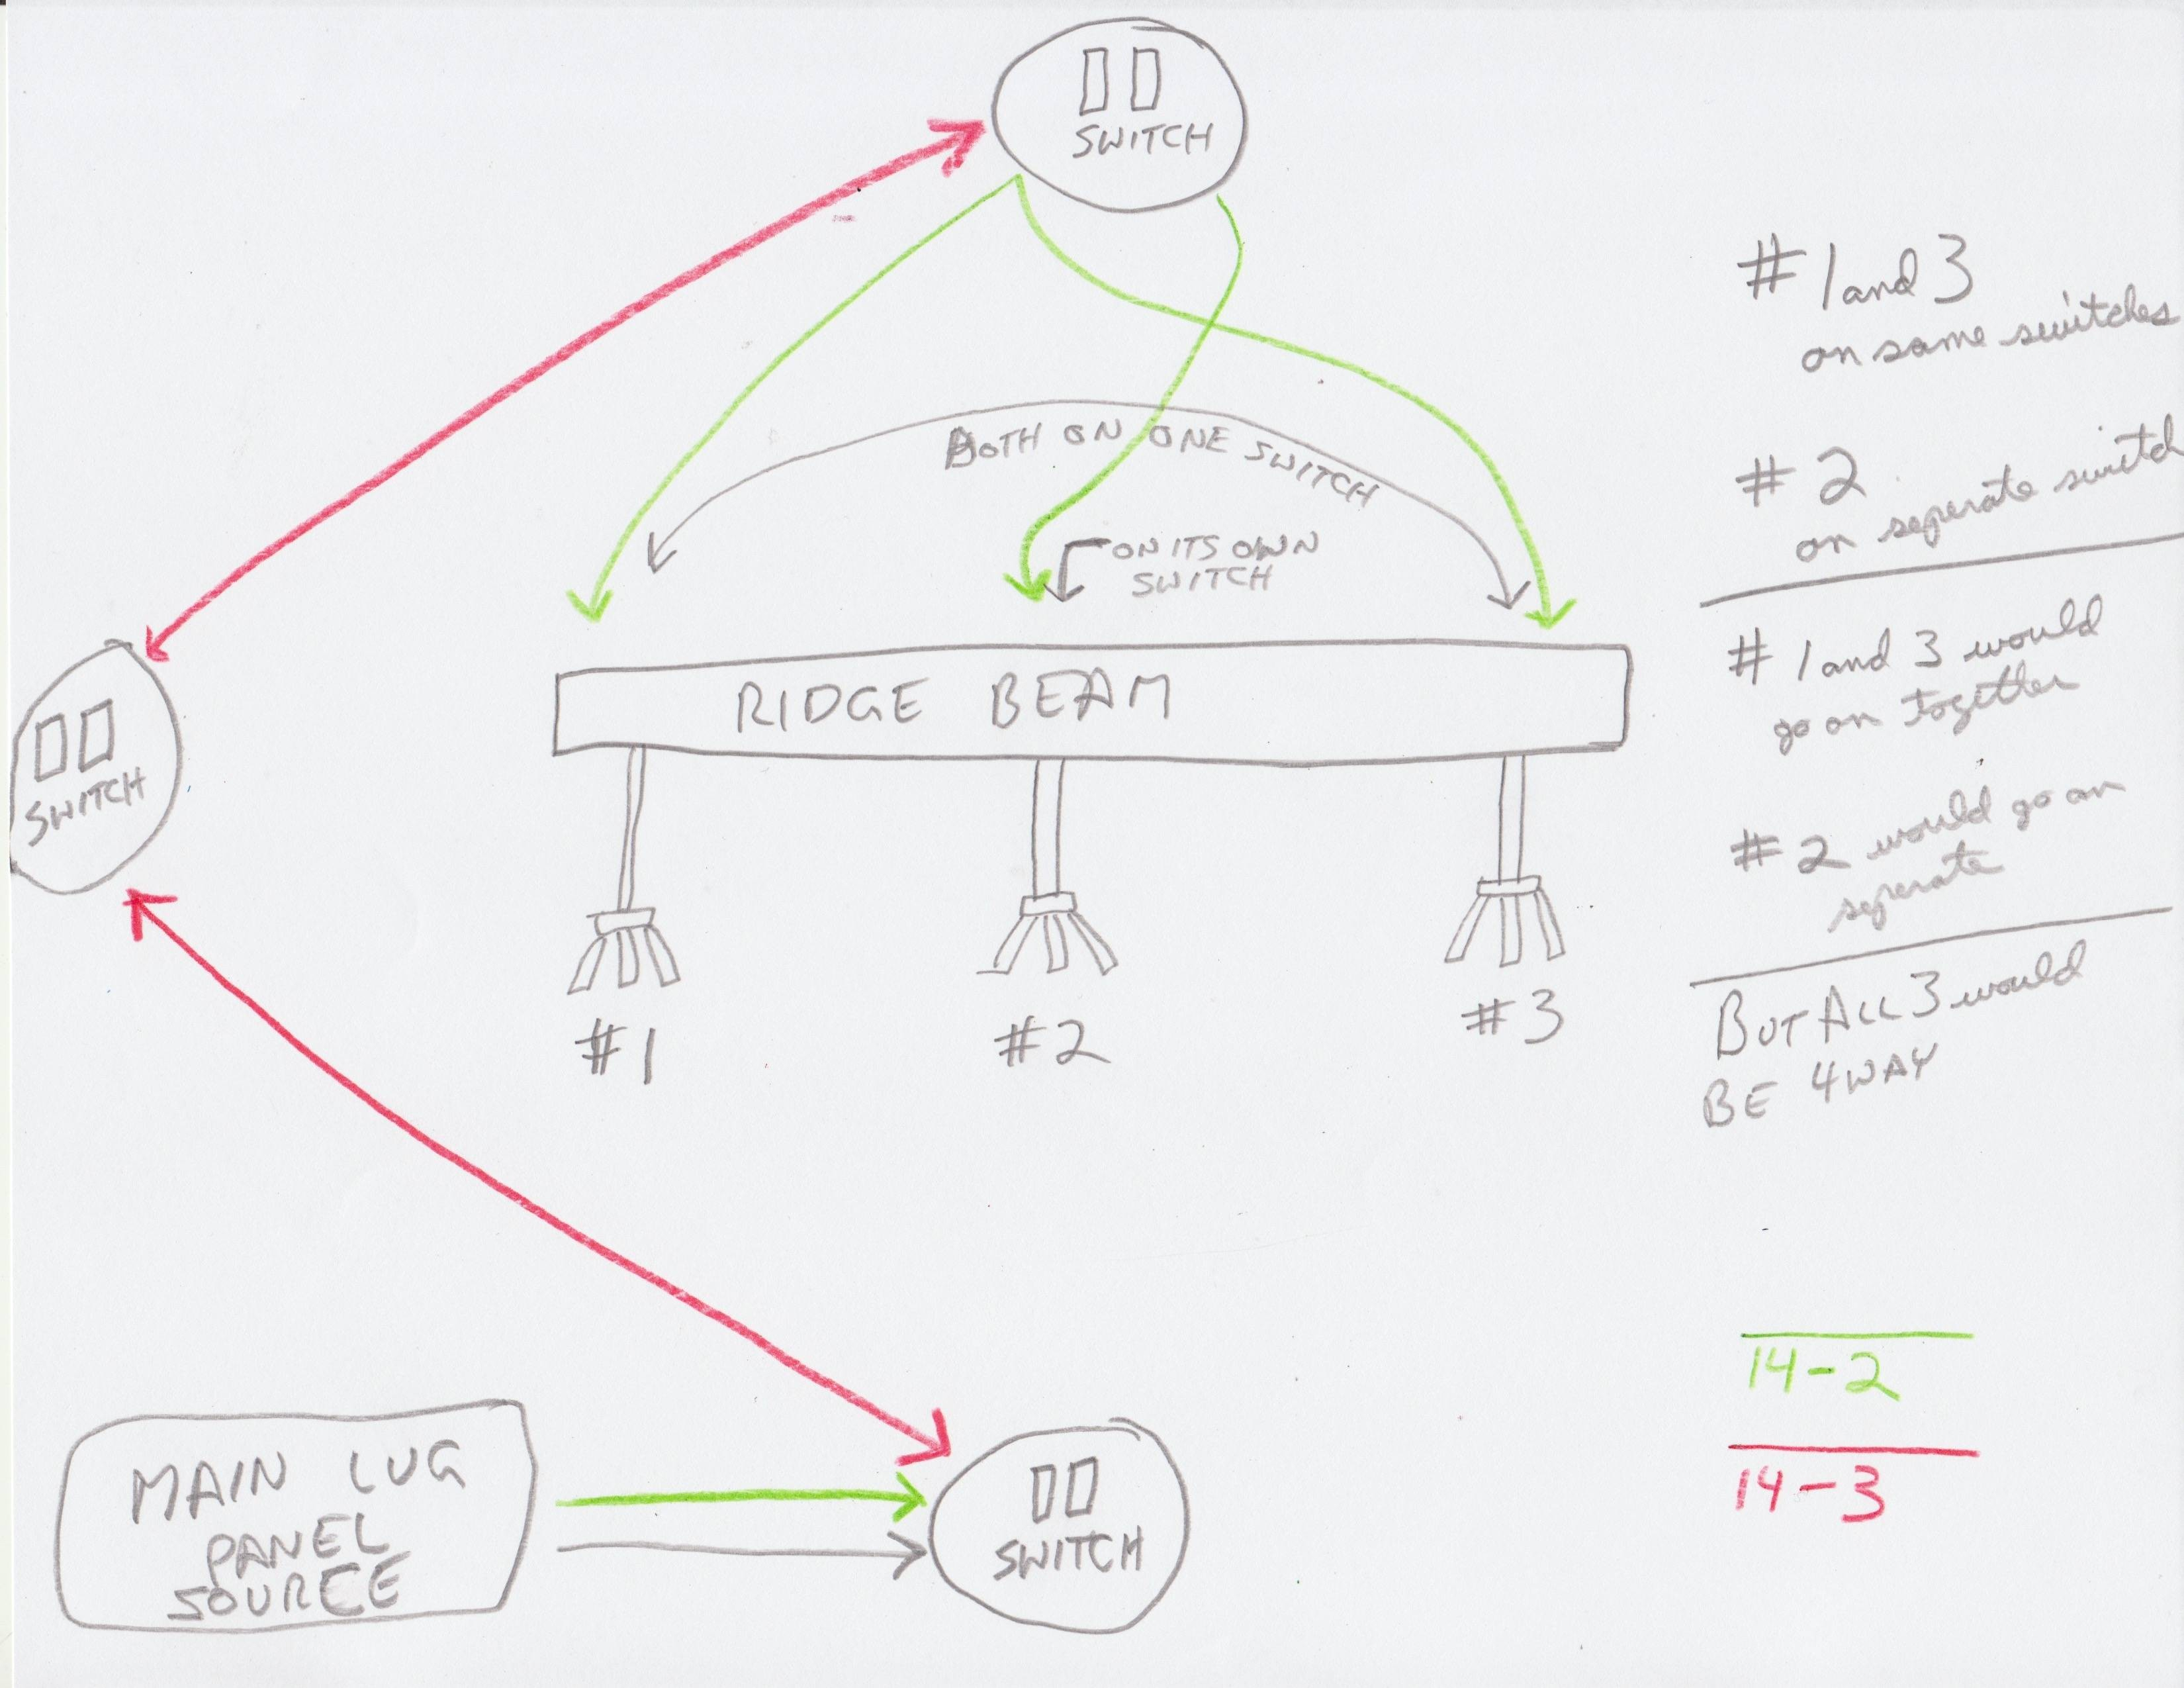 SWITCH
# 1 and 3
on same switches
BOTH ON ONE SWITCH
# 2
on seperate switch
ON ITS OWN
SWITCH
RIDGE BEAM
# 1 and 3 would
go on together
SWITCH
# 2 would go on
seperate
#1
#2
#3
BUT ALL 3 would
BE 4 WAY
14-2
MAIN LUG
PANEL
SOURCE
SWITCH
14-3